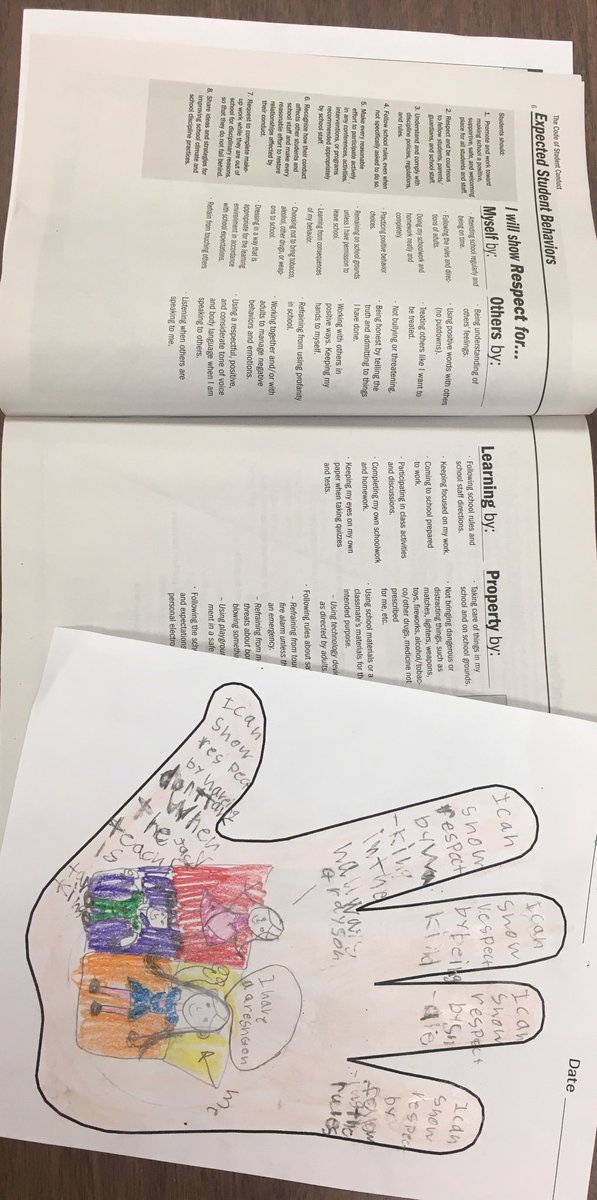 The Code of Student Conduct
6
Expected Student Behaviors
Students should:
1. Promote and work toward
making school a positive,
supportive, safe, and welcoming
place for all students and staff.
2. Respect and be courteous
to fellow students, parents/
guardians, and school staff.
3. Understand and comply with
discipline policies, regulations,
and rules.
4. Follow school rules, even when
not specifically asked to do so.
5. Make every reasonable
effort to participate actively
in any conferences, activities,
interventions, or programs
recommended appropriately
by school staff.
6. Recognize how their conduct
affects other students and
school staff and make every
reasonable effort to restore
relationships affected by
their conduct.
7. Request to complete make-
up work while they are out of
school for disciplinary reasons,
so that they do not fall behind.
8. Share ideas and strategies for
improving school climate and
school discipline practices.
I will show Respect for...
Myself by:
· Attending school regularly and
being on time.
· Following the rules and direc-
tions of adults.
· Doing my schoolwork and
homework neatly and
completely.
· Practicing positive behavior
choices.
· Remaining on school grounds
unless I have permission to
leave school.
· Learning from consequences
of my behavior.
· Choosing not to bring tobacco,
alcohol, other drugs, or weap-
ons to school.
· Dressing in a way that is
appropriate for the learning
environment in accordance
with school expectations.
· Refrain from touching others
Others by:
· Being understanding of
others' feelings.
· Using positive words with others
(no putdowns).
· Treating others like I want to
be treated.
· Not bullying or threatening.
· Being honest by telling the
truth and admitting to things
I have done.
· Working with others in
positive ways. Keeping my
hands to myself.
· Refraining from using profanity
in school.
· Working together and/or with
adults to manage negative
behaviors and emotions.
· Using a respectful, positive,
and considerate tone of voice
and body language when I am
speaking to others.
· Listening when others are
speaking to me.
Learning by:
· Following school rules and
school staff directions.
· Keeping focused on my work.
· Coming to school prepared
to work.
· Participating in class activities
and discussions.
· Completing my own schoolwork
and homework.
· Keeping my eyes on my own
paper when taking quizzes
and tests.
Property by:
· Taking care of things in my
school and on school grounds.
· Not bringing dangerous or
distracting things, such as
matches, lighters, weapons,
toys, fireworks, alcohol/tobac-
co/other drugs, medicine not
prescribed
for me, etc.
· Using school materials or a
classmate's materials for th
intended purpose.
· Following rules about sa
– Using technology devi
as directed by adults
– Refraining from tour
fire alarm unless th
an emergency.
– Refraining from m
threats about bon
blowing somethin
– Using playgroun
ment in a safe
· Following the sch
and expectations
personal electro
Date
I can
show
respect
by wa
-king
in the
hallway
I can
show
respect
by being
kind
I can
show
respect
by
I can
show
respect
by
follow
ing the
rules
I can
show
res pect
by
dont talk
when
the
teach
is
I have
a
me